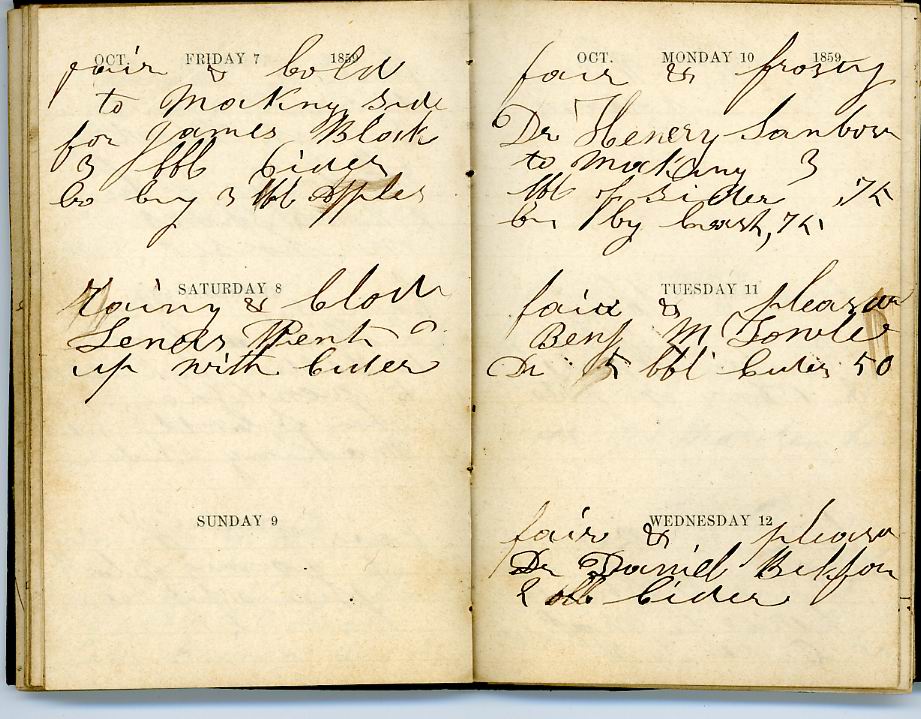 OCT. FRIDAY 7 1859
fair & Cold
to Making Side
for James Block
3 bbl Cider
by 3 bbl Apples
SATURDAY 8
Rainy &
up with Cider
SUNDAY 9
OCT. MONDAY 10 1859
fair & frosty
Dr Henery Sanborn
to Making 3
bbl of Sider ,75
by Cash, 75
TUESDAY 11
fair & pleasan
Benj M Towle
Dr 5 bbl Cider 50
WEDNESDAY 12
fair & pleasan
Dr Daniel
bbl Cider